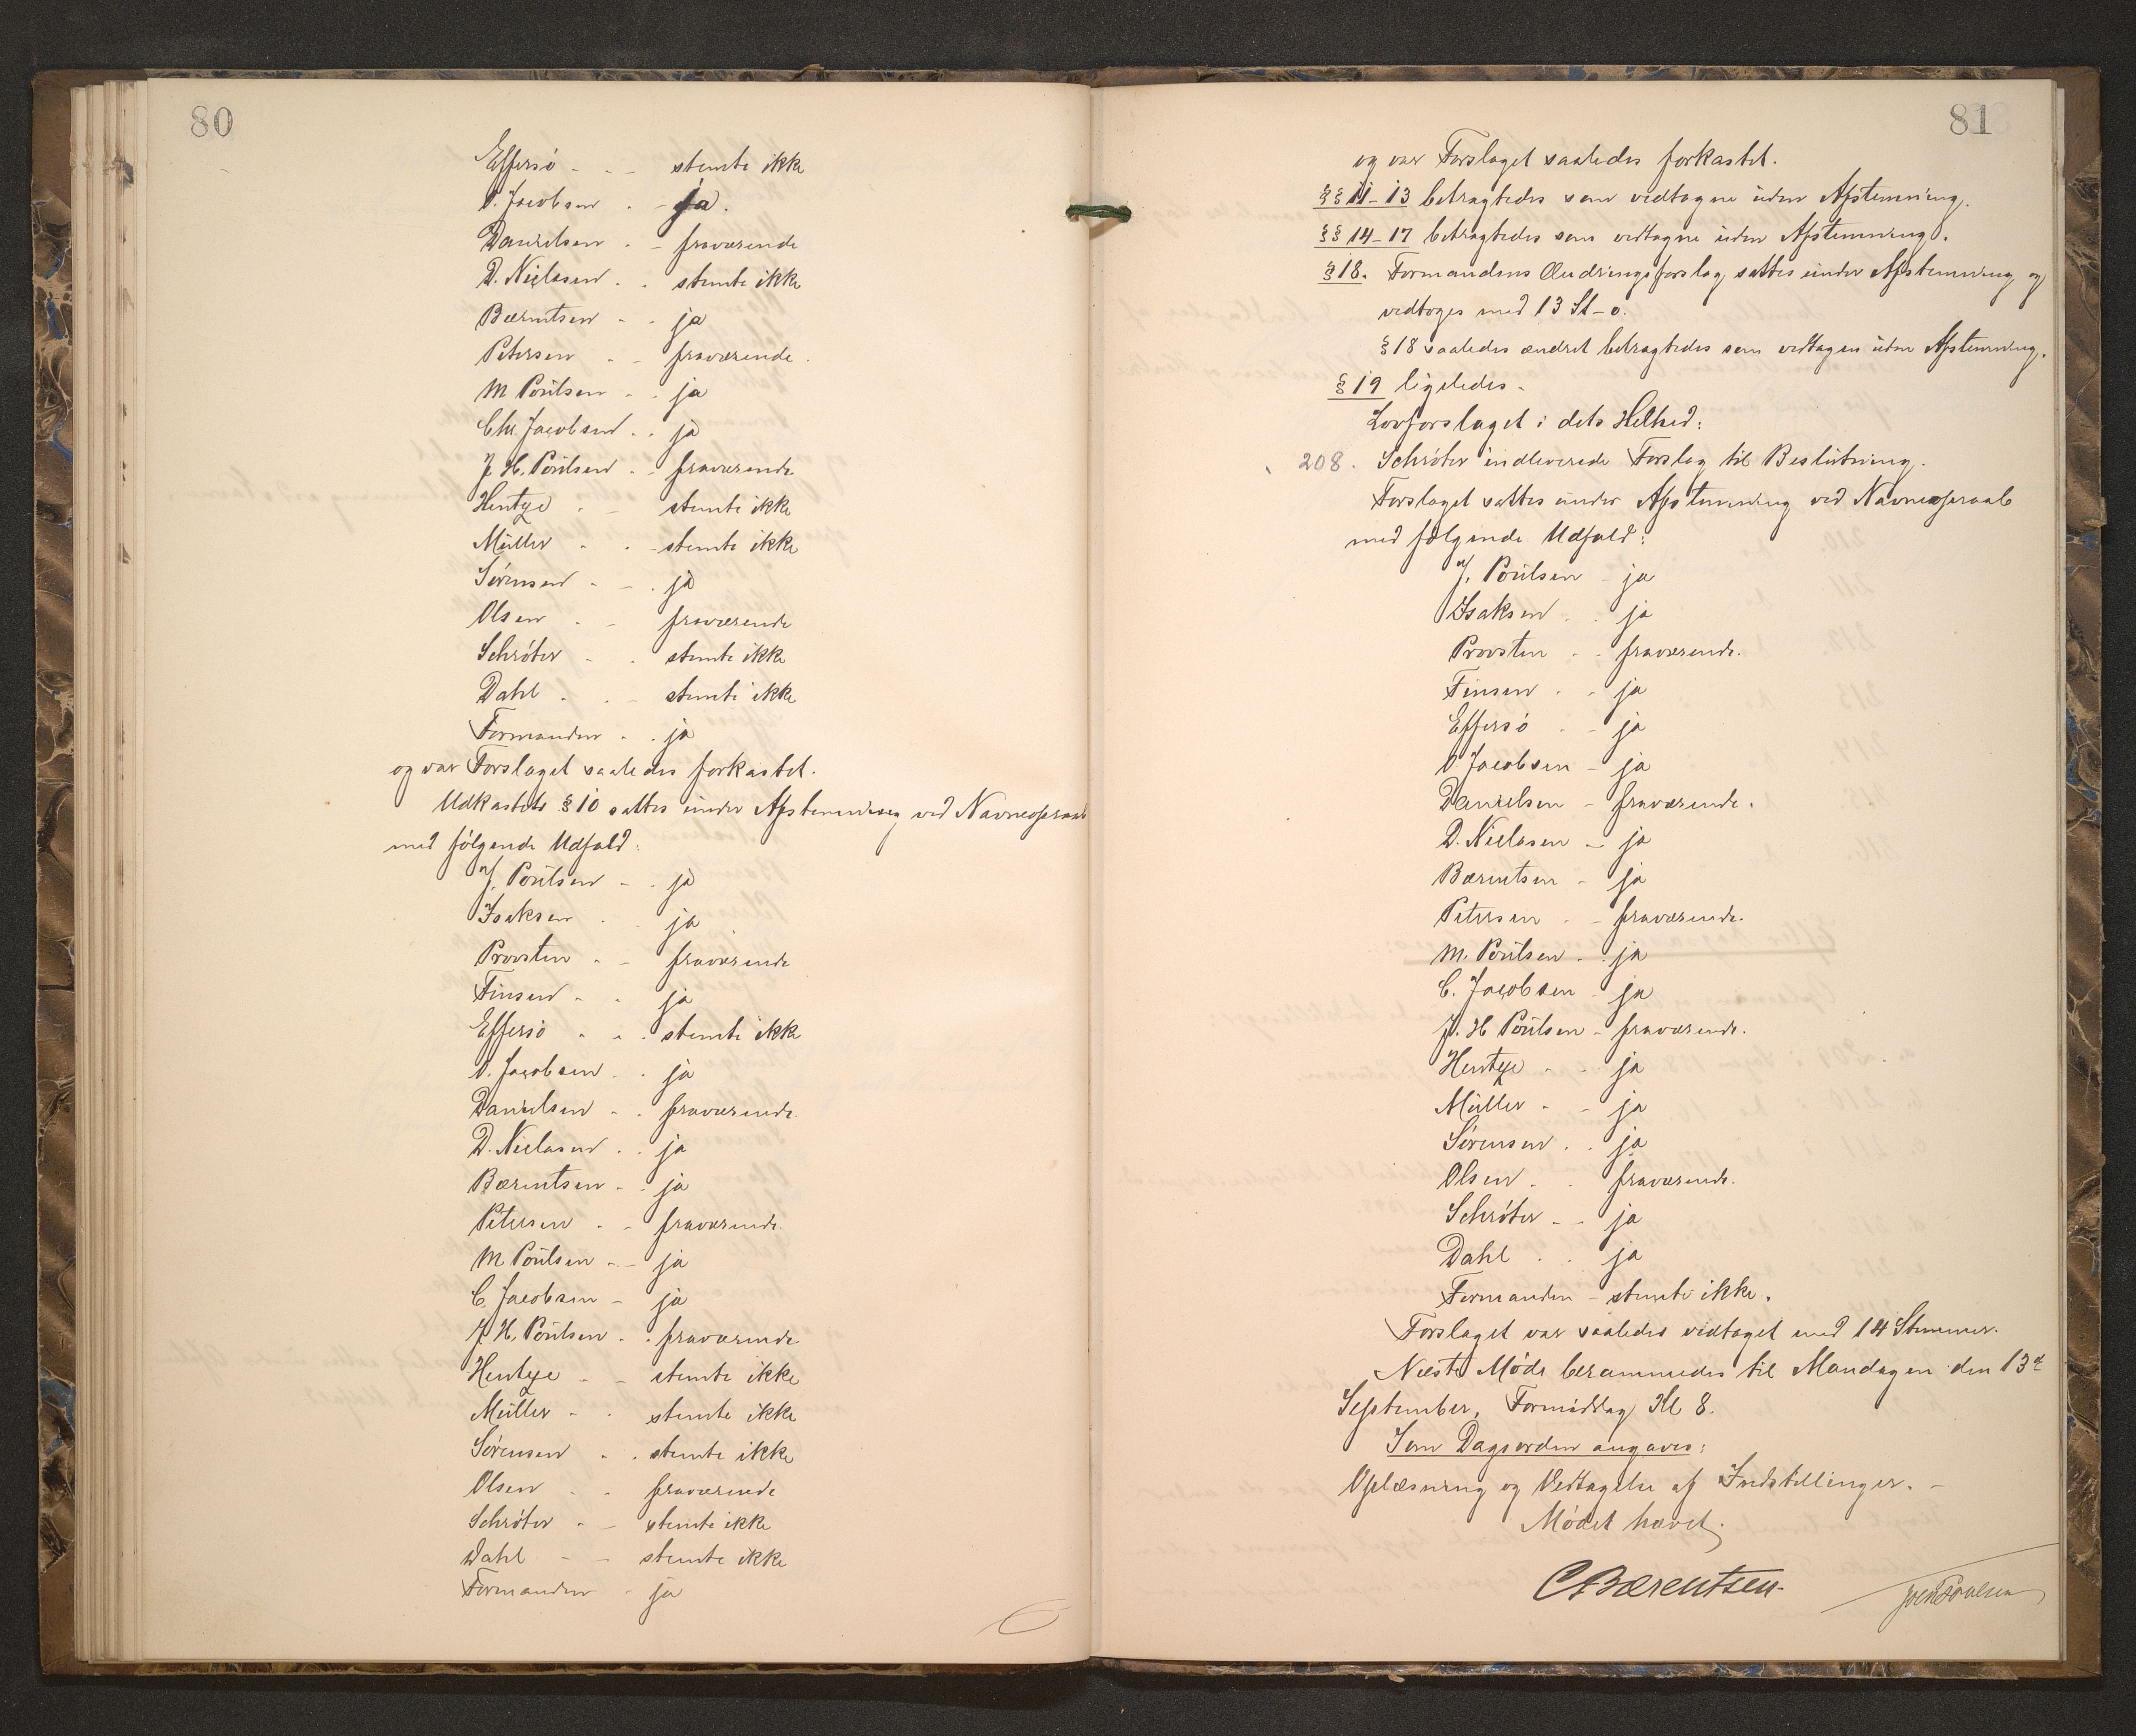 80
Effersö - - - stemte ikke
O. Jacobsen - - ja.
Danielsen - - fraværende
D. Nielasen - - stemte ikke
Bærentsen - - ja
Petersen - - fraværende.
M Poülsen - - ja
Chr. Jacobsen - - ja
J. H. Poülsen - - fraværende
Hentze - - stemte ikke
Müller - - stemte ikke
Sørensen - - ja
Olsen - - fraværende
Schröter - - stemte ikke
Dahl - - stemte ikke
Formanden - - ja
og var Forslaget saaledes forkastet.
Udkastets § 10 sattes ünder Afstemning ved Navneopraab
med følgende Udfald:
J. Poülsen - - ja
Isaksen - - ja
Provsten - - fraværende
Finsen - - ja
Effersö - - - stemte ikke
O. Jacobsen - - ja
Danielsen - - fraværende.
D. Nielasen - - ja
Bærentsen - - ja
Petersen - - fraværende.
M Poülsen - - ja
C. Jacobsen - ja
J. H. Poülsen - - fraværende
Hentze - - stemte ikke
Müller - - stemte ikke
Sørensen - - stemte ikke
Olsen - - fraværende
Schröter - - stemte ikke
Dahl - - stemte ikke
Formanden - ja
81
og var Forslaget saaledes forkastet.
§§ 11-13 betragtedes som vedtagne üden Afstemning.
§§ 14-17 betragtedes som vedtagne üden Afstemning.
§ 18. Formandens Ændringsforslag sattes ünder Afstemning og
vedtoges med 13 St - 0.
§ 18 saaledes ændret betragtedes som vedtagen üden Afstemning.
§ 19 ligeledes.
Lovforslaget i dets Helhed:
208. Schröter indleverede Forslag til Beslütning.
Forslaget sattes ünder Afstemning ved Navneopraab
med følgende Udfald:
J. Poülsen - ja
Isaksen - - ja
Provsten - - fraværende.
Finsen - - ja
Effersö - - ja
O. Jacobsen - ja
Danielsen - fraværende.
D. Nielasen - ja
Bærentsen - ja
Petersen - - fraværende.
M. Poülsen - - ja
C. Jacobsen - ja
J. H Poülsen - fraværende.
Hentze - - ja
Müller - - ja
Sørensen - - ja
Olsen - - fraværende.
Schröter - - ja
Dahl - - ja
Formanden - stemte ikke.
Forslaget var saaledes vedtaget med 14 Stemmer.
Næste Møde berammedes til Mandagen den 13de
September, Formiddag Kl 8.
Som Dagsorden angaves:
Oplæsning og Vedtagelse af Indstillinger. -
Mødet hævet.
C Bærentsen. Poulsen